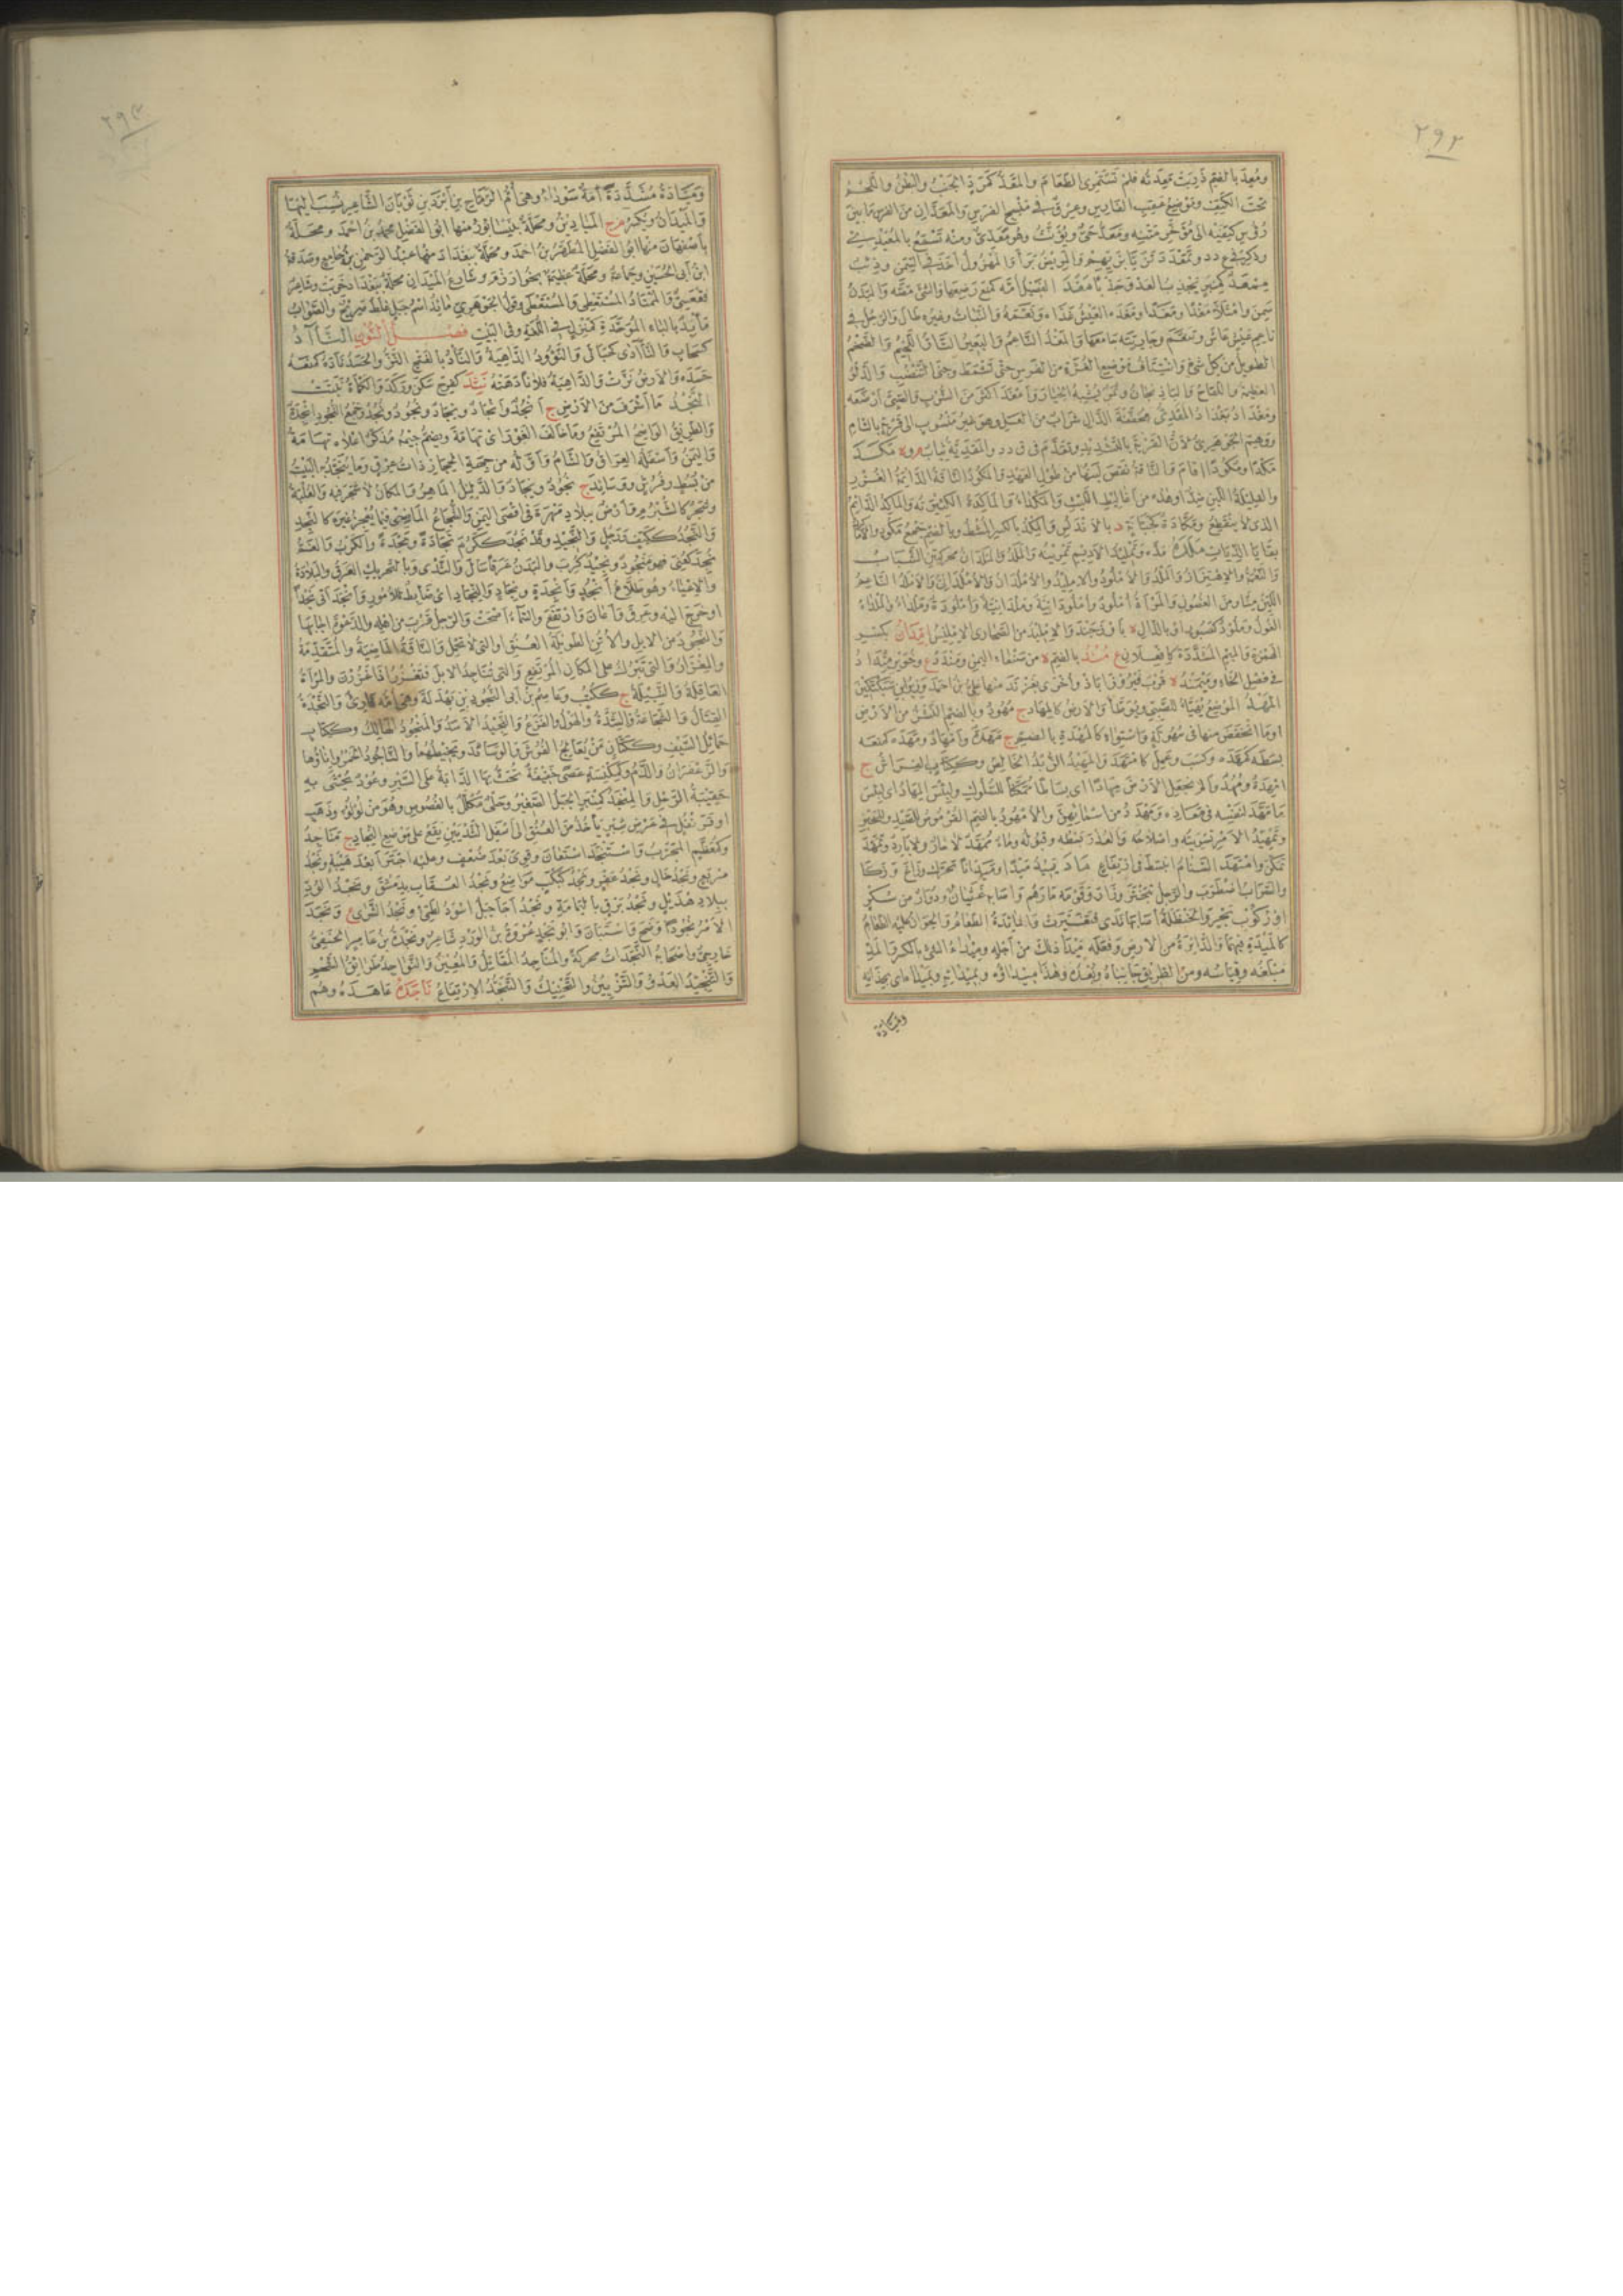 ٢٩٢
ومُعِدَ بالضم ذَرِبَت مَعِدَتُه فلم تَستَمرِئ الطَعَامَ والمَعَدُّ كَمَرَدٍّ الجَنبُ والبَطنُ واللَّحمُ
تحتَ الكَتِفِ ومَوضِعُ عَقِبِ الفارسِ وعِرقٌ في مَنسِجِ الفَرَسِ والمَعَدّانِ من الفَرَسِ ما بَينَ
رُؤُوسِ كَتِفَيه الى مُؤَخَّرِ مَتنِه ومَعَدٌّ حَيٌّ ويُؤَنَّثُ وهو مَعَدِّيٌّ ومنه تَسمَعُ بالمُعَيدِيِّ
وذُكِرَ في ع د د وتَمَعدَدَ تَزَيّا بِزِيِّهِم والمَريضُ بَرَأَ والمَهزولُ أخَذَ في السِمَنِ وذِئبٌ
مِمعَدٌ كمِنبَرٍ يَجذِبُ العَدوَ جَذباً مَغَدَ الفَصيلُ أُمَّه كمَنَع رَضِعَها والشَيءَ مَصَّه والبَدَنُ
سَمِنَ وامتَلأَ مَغداً ومَغَداً ومَغَدَه العَيشُ غَذاه ونَعَّمَه والنَباتُ وغيرُه طالَ والرَجُلُ في
ناعِمِ عَيشٍ عاشَ وتَنَعَّمَ وجارِيَتَه جامَعَها والمَغدُ الناعِمُ والبَعيرُ التارُّ اللَحيمُ والضَخمُ
الطويلُ من كلِّ شيءٍ وانتِتافُ مَوضِعِ الغُرَّةِ من الفَرَسِ حتى تَشمَطَ وجَنى التَنضُبِ والدَلوُ
العظيمةُ واللُفّاحُ والباذِنجانُ وثَمَرٌ يُشبِهُ الخِيارَ وأمغَدَ أكثَرَ من الشُربِ والصَبيَّ أرضَعَه
ومَغدادُ بَغدادُ المَقَدِيُّ مُخَفَّفَةَ الدالِ شَرابٌ من العَسَلِ وهو غيرُ مَنسوبٍ الى قَريَةٍ بالشامِ
ووَهِمَ الجَوهَريُّ لأنَّ القَريَةَ بالتشديدِ وتَقَدَّمَ في ق د د والمَقَدِيَّةُ ثِيابٌ م مَكَدَ
مَكداً ومُكوداً أقامَ والناقةُ نَقَصَ لَبَنُها من طولِ العَهدِ والمَكودُ الناقةُ الدائمةُ الغُزرِ
والقَليلةُ اللَبَنِ ضِدٌّ
الذي لا يَنقَطِعُ
بقايا الدِياتِ مَلَدَه مَدَّه وتَمليدُ الأديمِ تَمرينُه والمَلَدُ والمَلَدانُ محركتينِ الشَبابُ
والنَعمَةُ والاهتِزازُ والمَلدُ والأُملودُ والإمليدُ والأُملُدانُ والأُملُدانيُّ والأُملُدُ الناعِمُ
اللَيِّنُ مِنّا ومن الغُصونِ والمَرأةُ أُملودٌ وأُملودانِيَّةٌ ومَلدانِيَّةٌ وأُملودَةٌ ومَلداءُ والمَلدُ
الغولُ ومَلودٌ كصَبورٍ أو بالذالِ ة بأوزجَندَ والإمليدُ من الصَحارى الإمليسُ إمِّدانُ بكسرِ
الهمزةِ والميمِ المشدَّدةِ كإفعِلانٍ ع مُندٌ بالضم ة من صَنعاءِ اليَمَنِ ومَندَدٌ ع وخُوَيزِ مِندادَ
في فَصلِ الخاءِ ومَيمَندُ ة
المَهدُ المَوضِعُ يُهَيَّأُ للصَبيِّ ويُوَطَّأُ والأرضُ كالمِهادِ ج مُهودٌ وبالضم النَشزُ من الأرضِ
أو ما انخَفَضَ منها في سُهولَةٍ واستِواءٍ كالمُهدَةِ بالضم ج مِهَدَةٌ وأمهادٌ ومَهَدَه كمَنَعه
بَسَطَه كمَهَّدَه وكَسَبَ وعَمِلَ كامتَهَدَ والمَهيدُ الزُبدُ الخالِصُ وككِتابٍ الفِراشُ ج
أمهِدَةٌ ومُهُدٌ وألم نجعل الأرضَ مِهاداً أي بِساطاً مُمَكَّناً للسُلوكِ ولبئسَ المِهادُ أي بِئسَ
ما مَهَّدَ لنَفسِه في مَعادِه ومَهدَدُ من أسمائِهِنَّ والأُمهودُ بالضم القُرموصُ للصَيدِ وللخَبزِ
وتَمهيدُ الأمرِ تَسوِيَتُه وإصلاحُه والعُذرِ بَسطُه وقَبولُه وماءٌ مُمَهَّدٌ لا حارٌّ ولا بارِدٌ وتَمَهَّدَ
تَمَكَّنَ وامتَهَدَ السَنامُ انبَسَطَ في ارتِفاعٍ مادَ يَميدُ مَيداً ومَيَداناً تَحَرَّكَ وزاغَ وزَكا
والسَرابُ اضطَرَبَ والرجُلُ تَبَختَرَ وزارَ وقَومَه مارَهُم وأصابَه غَثَيانٌ ودُوارٌ من سُكرٍ
أو رُكوبِ بَحرٍ والحَنظَلةُ أصابَها نَدىً فتَغَيَّرَت والمائدةُ الطَعامُ والخِوانُ عليه الطَعامُ
كالمَيدَةِ فيهما والدائرةُ من الأرضِ وفَعَلَه مَيدَ ذلك من أجلِه ومِيداءُ الشَيءِ بالكسر والمَدِّ
مَبلَغُه وقِياسُه ومن الطَريقِ جانِباهُ وبُعدُه وهذا مِيداؤُه وبمِيدائِه وبمِيداه أي بحِذائِه
وميّادة
٢٩٣
ومَيّادَةُ مُشَدَّدَةً أمَةٌ سَوداءُ وهي أُمُّ الرَمّاحِ بنِ أبرَدَ بنِ ثَوبانَ الشاعِرِ نُسِبَ إليها
والمَيدانُ ويُكسَرُ م ج المَيادينُ ومَحَلَّةٌ بنَيسابورَ منها أبو الفَضلِ محمدُ بنُ أحمدَ ومَحَلَّةٌ
بأصفَهانَ منها أبو الفضلِ المُطَهَّرُ بنُ أحمدَ ومَحَلَّةٌ ببَغدادَ منها عبدُ الرحمنِ بنُ جامِعٍ وصَدَقَةُ
ابنُ أبي الحُسَينِ وجَماعَةٌ ومَحَلَّةٌ عظيمةٌ بخُوارَزمَ وشارِعُ المَيدانِ مَحَلَّةٌ ببَغدادَ خَرِبَت وشاعِرٌ
فَقعَسِيٌّ والمُمتادُ المُستَعطي والمُستَعطى وقولُ الجَوهَريِّ مائِدٌ اسمُ جَبَلٍ غَلَطٌ صَريحٌ والصَوابُ
مابِدٌ بالباءِ المُوَحَّدَةِ كمَنزِلٍ في اللُغَةِ وفي البَيتِ فصل النون النَآدُ
كسَحابٍ والنَآدى كحَبالى والنَؤودُ الداهِيَةُ والنَأدُ بالفتح النَزُّ والحَسَدُ نَأدَه كمَنَعه
حَسَدَه والأرضُ نَزَّت والداهيةُ فُلاناً دَهَتهُ نَثِدَ كفَرِحَ سَكَنَ ورَكَدَ والكَمأةُ نَبَتَت
النَجدُ ما أشرَفَ من الأرضِ ج أنجُدٌ وأنجادٌ ونِجادٌ ونُجودٌ ونُجُدٌ وجَمعُ النُجودِ أنجِدَةٌ
والطَريقُ الواضِحُ المُرتَفِعُ وما خالَفَ الغَورَ أي تِهامَةَ وتُضَمُّ جيمُه مُذَكَّرٌ أعلاه تِهامَةُ
واليَمَنُ وأسفَلُه العِراقُ والشامُ وأوَّلُه من جِهَةِ الحِجازِ ذاتُ عِرقٍ وما يُنَجَّدُ به البَيتُ
من بُسُطٍ وفُرُشٍ ووَسائدَ ج نُجودٌ ونِجادٌ والدَليلُ الماهِرُ والمَكانُ لا شَجَرَ فيه والغَلَبَةُ
وشَجَرٌ كالشُبرُمِ وأرضٌ ببِلادِ مَهرَةَ في أقصى اليَمَنِ والشُجاعُ الماضي فيما يُعجِزُ غيرَه كالنَجِدِ
والنَجُدِ ككَتِفٍ ورَجُلٍ والنَجيدِ وقد نَجُدَ ككَرُمَ نَجادَةً ونَجدَةً والكَربُ والغَمُّ
نُجِدَ كعُنِيَ فهو مَنجودٌ ونَجيدٌ كُرِبَ والبَدَنُ عَرَقاً سالَ والثَديُ وبالتحريك العَرَقُ والبَلادَةُ
والإعياءُ وهو طَلّاعُ أنجُدٍ وأنجِدَةٍ ونِجادٍ والنِجادِ أي ضابِطٌ للأُمورِ وأنجَدَ أتى نَجداً
أو خَرَجَ إليه وعَرِقَ وأعانَ وارتَفَعَ والسَماءُ أصحَت والرجُلُ قَرُبَ من أهلِه والدَعوَةَ أجابَها
والنَجودُ من الإبِلِ والأُتُنِ الطَويلةُ العُنُقِ أو التي لا تَحمِلُ والناقةُ الماضيةُ والمُتَقَدِّمَةُ
والمِغزارُ والتي تَبرُكُ على المكانِ المُرتَفِعِ والتي تُناجِدُ الإبِلَ فتَغزُرُ إذا غَزُرنَ والمَرأةُ
العاقِلةُ والنَبيلةُ ج ككُتُبٍ وعاصِمُ بنُ أبي النَجودِ بنِ بَهدَلَةَ وهي أُمُّه قارِئٌ والنَجدَةُ
القِتالُ والشَجاعةُ والشِدَّةُ والهَولُ والفَزَعُ والنَجيدُ الأسَدُ والمَنجودُ الهالِكُ وككِتابٍ
حَمائلُ السَيفِ وككَتّانٍ مَن يُعالِجُ الفُرُشَ والوَسائدَ ويَخيطُهُما والناجودُ الخَمرُ وإناؤُها
والزَعفَرانُ والدَمُ وكمِكنَسَةٍ عَصاً خَفيفةٌ تُحَثُّ بها الدابَّةُ على السَيرِ وعودٌ يُحشى به
حَقيبَةُ الرَحلِ والمِنجَدُ كمِنبَرٍ الجَبَلُ الصَغيرُ وحُليٌّ مُكَلَّلٌ بالفُصوصِ وهو من لُؤلُؤٍ وذَهَبٍ
أو قَرَنفُلٍ في عَرضِ شِبرٍ يأخُذُ من العُنُقِ الى أسفَلِ الثَديَينِ يَقَعُ على مَوضِعِ النِجادِ ج مَناجِدُ
وكمُعَظَّمٍ المُجَرَّبُ واستَنجَدَ استَعانَ وقَوِيَ بعدَ ضُعفٍ وعليه اجتَرَأ بعدَ هَيبَةٍ ونَجدُ
مَريعٍ ونَجدُ خالٍ ونَجدُ عُفرٍ ونَجدُ كَبكَبٍ مَواضِعُ ونَجدُ العُقابِ بدِمَشقَ ونَجدُ الوُدِّ
ببِلادِ هُذَيلٍ ونَجدُ بَرقٍ باليَمامَةِ ونَجدُ أجَأ جَبَلٌ أسوَدُ لطَيِّئٍ ونَجدُ الشَرى ع ونَجَدَ
الأمرُ نُجوداً وَضَحَ واستَبانَ وأبو نَجدٍ عُروَةُ بنُ الوَردِ شاعِرٌ ونَجدَةُ بنُ عامِرٍ الحَنَفيُّ
خارِجيٌّ وأصحابُه النَجَداتُ محركةً والمُناجِدُ المُقاتِلُ والمُعينُ والنَواجِدُ طَرائقُ الشَحمِ
والتَنجيدُ العَدوُ والتَزيينُ والتَحنيكُ والتَنَجُّدُ الارتِفاعُ ناجَدَه عاهَدَه وهُم